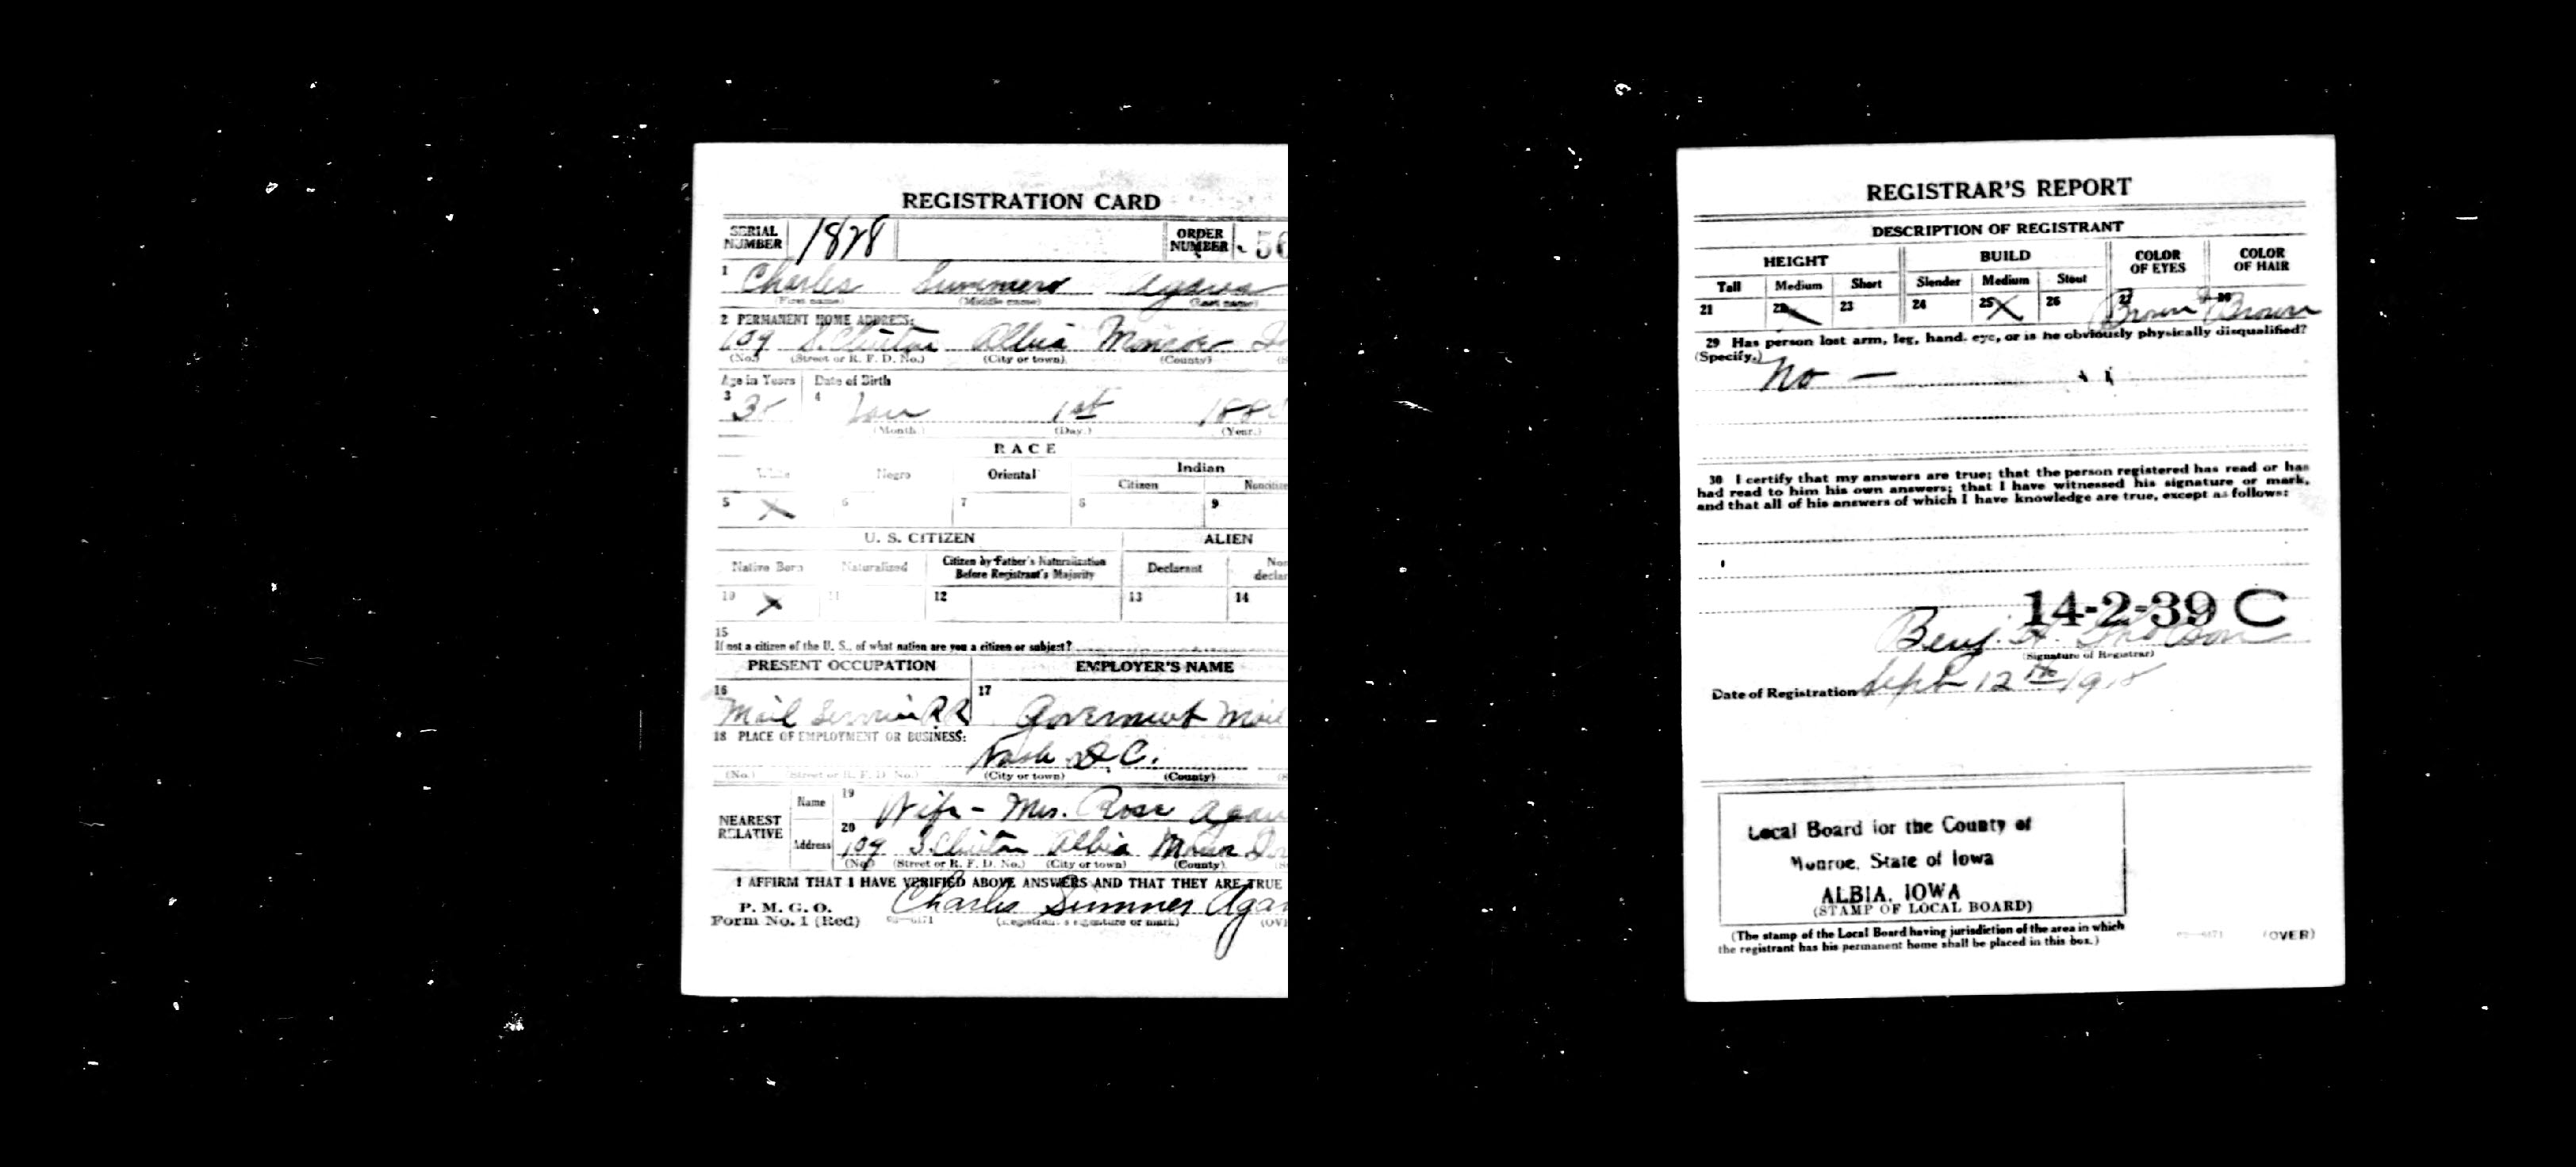 REGISTRATION CARD
SERIAL NUMBER 1828 ORDER NUMBER 56
1 Charles Summers
(First name) (Middle name) (Last name)
2 PERMANENT HOME ADDRESS:
109 S. Clinton Albia Monroe
(No.) (Street or R. F. D. No.) (City or town) (County)
Age in Years Date of Birth
3 4 Jan 1st
(Month.) (Day.) (Year.)
RACE
White Negro Oriental Indian
Citizen Noncitize
5 X 6 7 8 9
U. S. CITIZEN ALIEN
Native Born Naturalized Citizen by Father's Naturalization Before Registrant's Majority Declarant Non- declar
10 X 11 12 13 14
15
If not a citizen of the U. S., of what nation are you a citizen or subject?
PRESENT OCCUPATION EMPLOYER'S NAME
16 17
Mail Service RR Government Mail
18 PLACE OF EMPLOYMENT OR BUSINESS:
Wash D.C.
(No.) (Street or R. F. D. No.) (City or town) (County)
NEAREST RELATIVE
Name 19 Wife - Mrs. Rose
Address 20 109 S. Clinton Albia
(No.) (Street or R. F. D. No.) (City or town) (County)
I AFFIRM THAT I HAVE VERIFIED ABOVE ANSWERS AND THAT THEY ARE TRUE
P. M. G. O.
Form No. 1 (Red) Charles Sumner Agan
(Registrant's signature or mark) (OV
REGISTRAR'S REPORT
DESCRIPTION OF REGISTRANT
HEIGHT BUILD COLOR OF EYES COLOR OF HAIR
Tall Medium Short Slender Medium Stout
21 22 23 24 25 X 26 27 Brown 28 Brown
29 Has person lost arm, leg, hand, eye, or is he obviously physically disqualified?
(Specify.) No -
30 I certify that my answers are true; that the person registered has read or has
had read to him his own answers; that I have witnessed his signature or mark,
and that all of his answers of which I have knowledge are true, except as follows:
14-2-39 C
Benj.
(Signature of Registrar)
Date of Registration Sept 12th 1918
Local Board for the County of
Monroe, State of Iowa
ALBIA, IOWA
(STAMP OF LOCAL BOARD)
(The stamp of the Local Board having jurisdiction of the area in which
the registrant has his permanent home shall be placed in this box.)
(OVER)